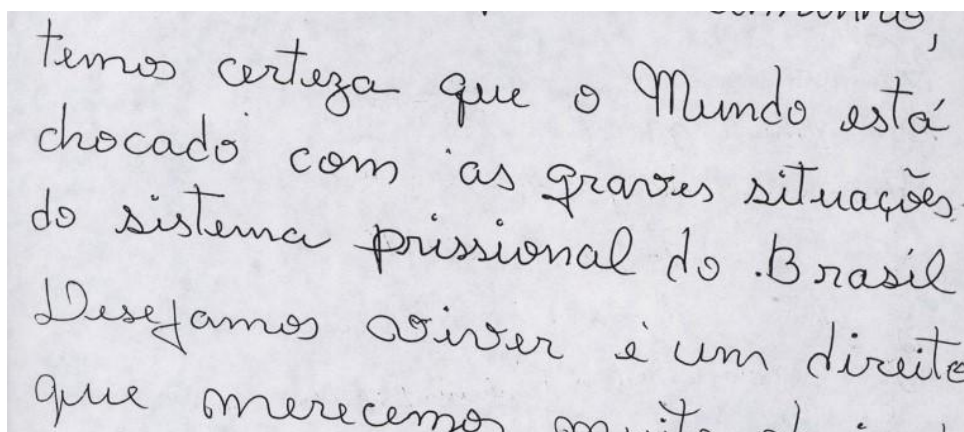 temos certeza que o Mundo está
chocado com as graves situações
do sistema prissional do Brasil
Desejamos viver é um direito
que merecemos muito